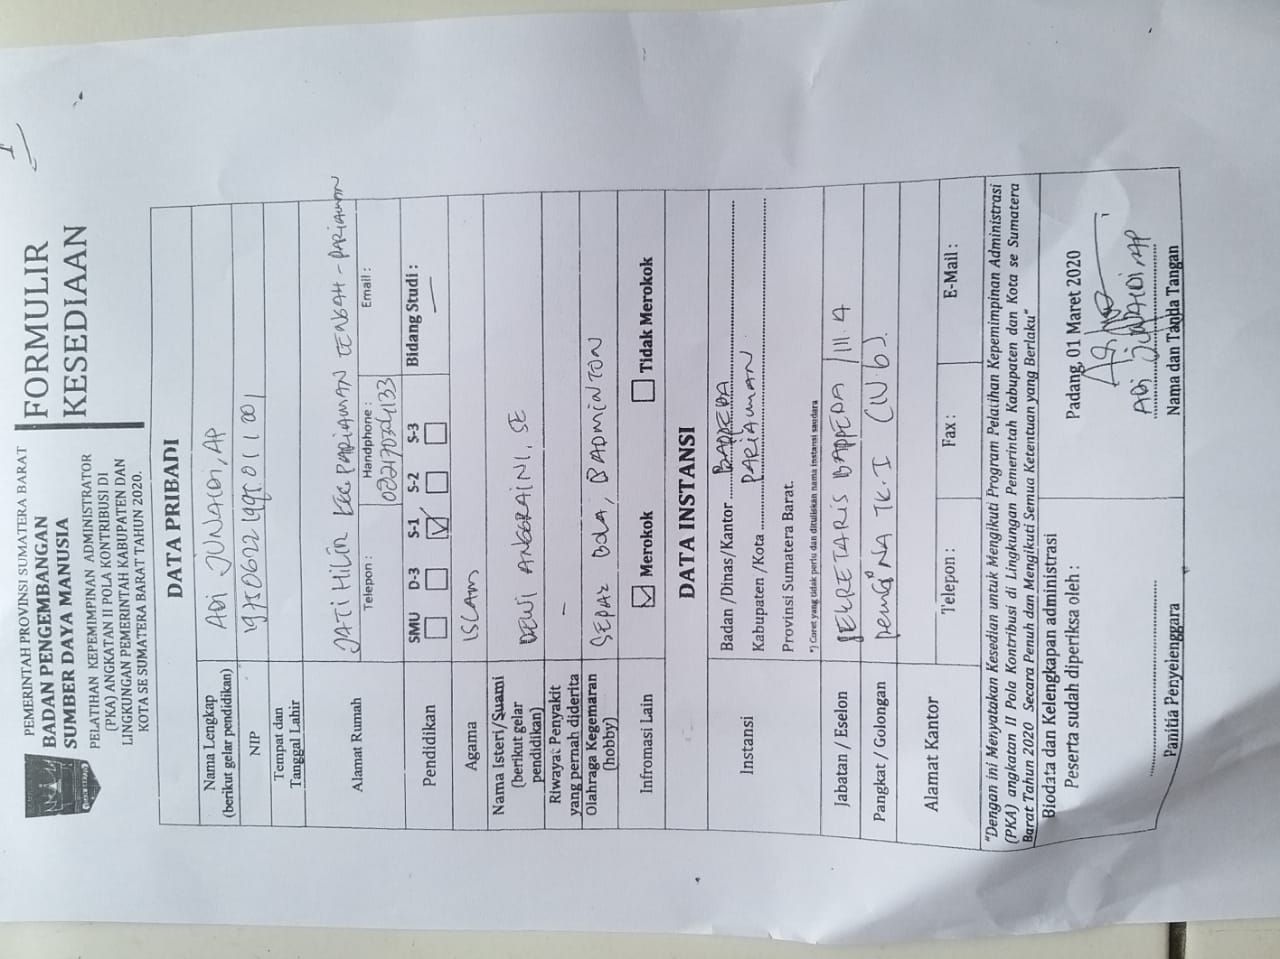 PEMERINTAH PROVINSI SUMATERA BARAT
BADAN PENGEMBANGAN
SUMBER DAYA MANUSIA
PELATIHAN KEPEMIMPINAN ADMINISTRATOR
(PKA) ANGKATAN II POLA KONTRIBUSI DI
LINGKUNGAN PEMERINTAH KABUPATEN DAN
KOTA SE SUMATERA BARAT TAHUN 2020.
FORMULIR
KESEDIAAN
DATA PRIBADI
Nama Lengkap
(berikut gelar pendidikan)
ADI JUNAIDI, AP
NIP
19750622 1995 01 1 001
Tempat dan
Tanggal Lahir
Alamat Rumah
JATI HILIR KEC PARIAMAN TENGAH - PARIAMAN
Telepon :
Handphone :
Email :
Pendidikan
SMU D-3 S-1 S-2 S-3
Bidang Studi :
Agama
ISLAM
Nama Isteri/Suami
(berikut gelar
pendidikan)
DEWI ANGGRAINI, SE
Riwayat Penyakit
yang pernah diderita
-
Olahraga Kegemaran
(hobby)
SEPAK BOLA, BADMINTON
Infromasi Lain
Merokok
Tidak Merokok
DATA INSTANSI
Instansi
Badan /Dinas/Kantor ..... BAPPEDA
Kabupaten /Kota ..... PARIAMAN
Provinsi Sumatera Barat.
*) Coret yang tidak perlu dan dituliskan nama instansi saudara
Jabatan / Eselon
SEKRETARIS BAPPEDA / III. A
Pangkat / Golongan
PEMBINA TK. I (IV b).
Alamat Kantor
Telepon :
Fax :
E-Mail :
"Dengan ini Menyatakan Kesedian untuk Mengikuti Program Pelatihan Kepemimpinan Administrasi
(PKA) angkatan II Pola Kontribusi di Lingkungan Pemerintah Kabupaten dan Kota se Sumatera
Barat Tahun 2020 Secara Penuh dan Mengikuti Semua Ketentuan yang Berlaku"
Biodata dan Kelengkapan administrasi
Peserta sudah diperiksa oleh :
Panitia Penyelenggara
Padang, 01 Maret 2020
ADI JUNAIDI, AP
Nama dan Tanda Tangan